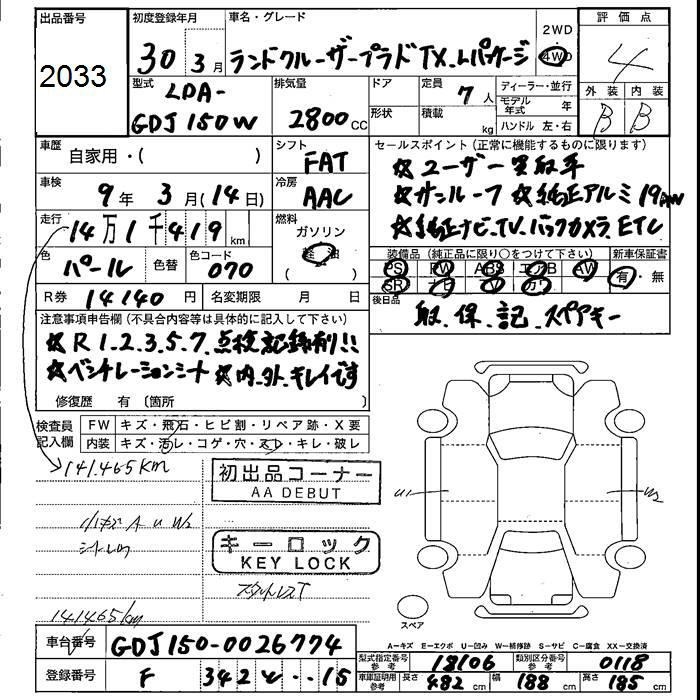 出品番号 初度登録年月 車名・グレード 2WD・4WD 評価点
2033 30年 3月 ランドクルーザープラド TX.Lパッケージ 4
型式 排気量 ドア 定員 ディーラー・並行 外装 内装
LDA-
GDJ150W 2800cc 7人 モデル年式 年 B B
形状 積載 kg ハンドル 左・右
車歴 シフト セールスポイント(正常に機能するものに限ります)
自家用・( ) FAT ☆ユーザー買取車
車検 冷房 ☆サンルーフ ☆純正アルミ19AW
9年 3月(14日) AAC ☆純正ナビ.TV.バックカメラ.ETC
走行 燃料
14万1千419km ガソリン
軽油
( )
色 色替 色コード 装備品(純正品に限り○をつけて下さい) 新車保証書
パール 070 PS PW ABS エアB AW 有・無
SR ナビ TV カワ
R券 14140円 名変期限 月 日 後日品
取.保.記.スペアキー
注意事項申告欄(不具合内容等は具体的に記入して下さい)
☆R1.2.3.5.7.点検記録有り!!
☆ベンチレーションシート ☆内.外.キレイです
修復歴 有〔箇所 〕
検査員記入欄 FW キズ・飛石・ヒビ割・リペア跡・X要
内装 キズ・汚レ・コゲ・穴・スレ・キレ・破レ
141.465km
初出品コーナー
AA DEBUT
小キズ A U W2
キーロック
KEY LOCK
141465km
U1 W2
スペア
A-キズ E-エクボ U-凹み W-補修跡 S-サビ C-腐食 XX-交換済
車台番号 GDJ150-0026774
型式指定番号参考 18106 類別区分番号参考 0118
登録番号 F 342 15
車庫証明用参考 長さ 482cm 幅 188cm 高さ 185cm